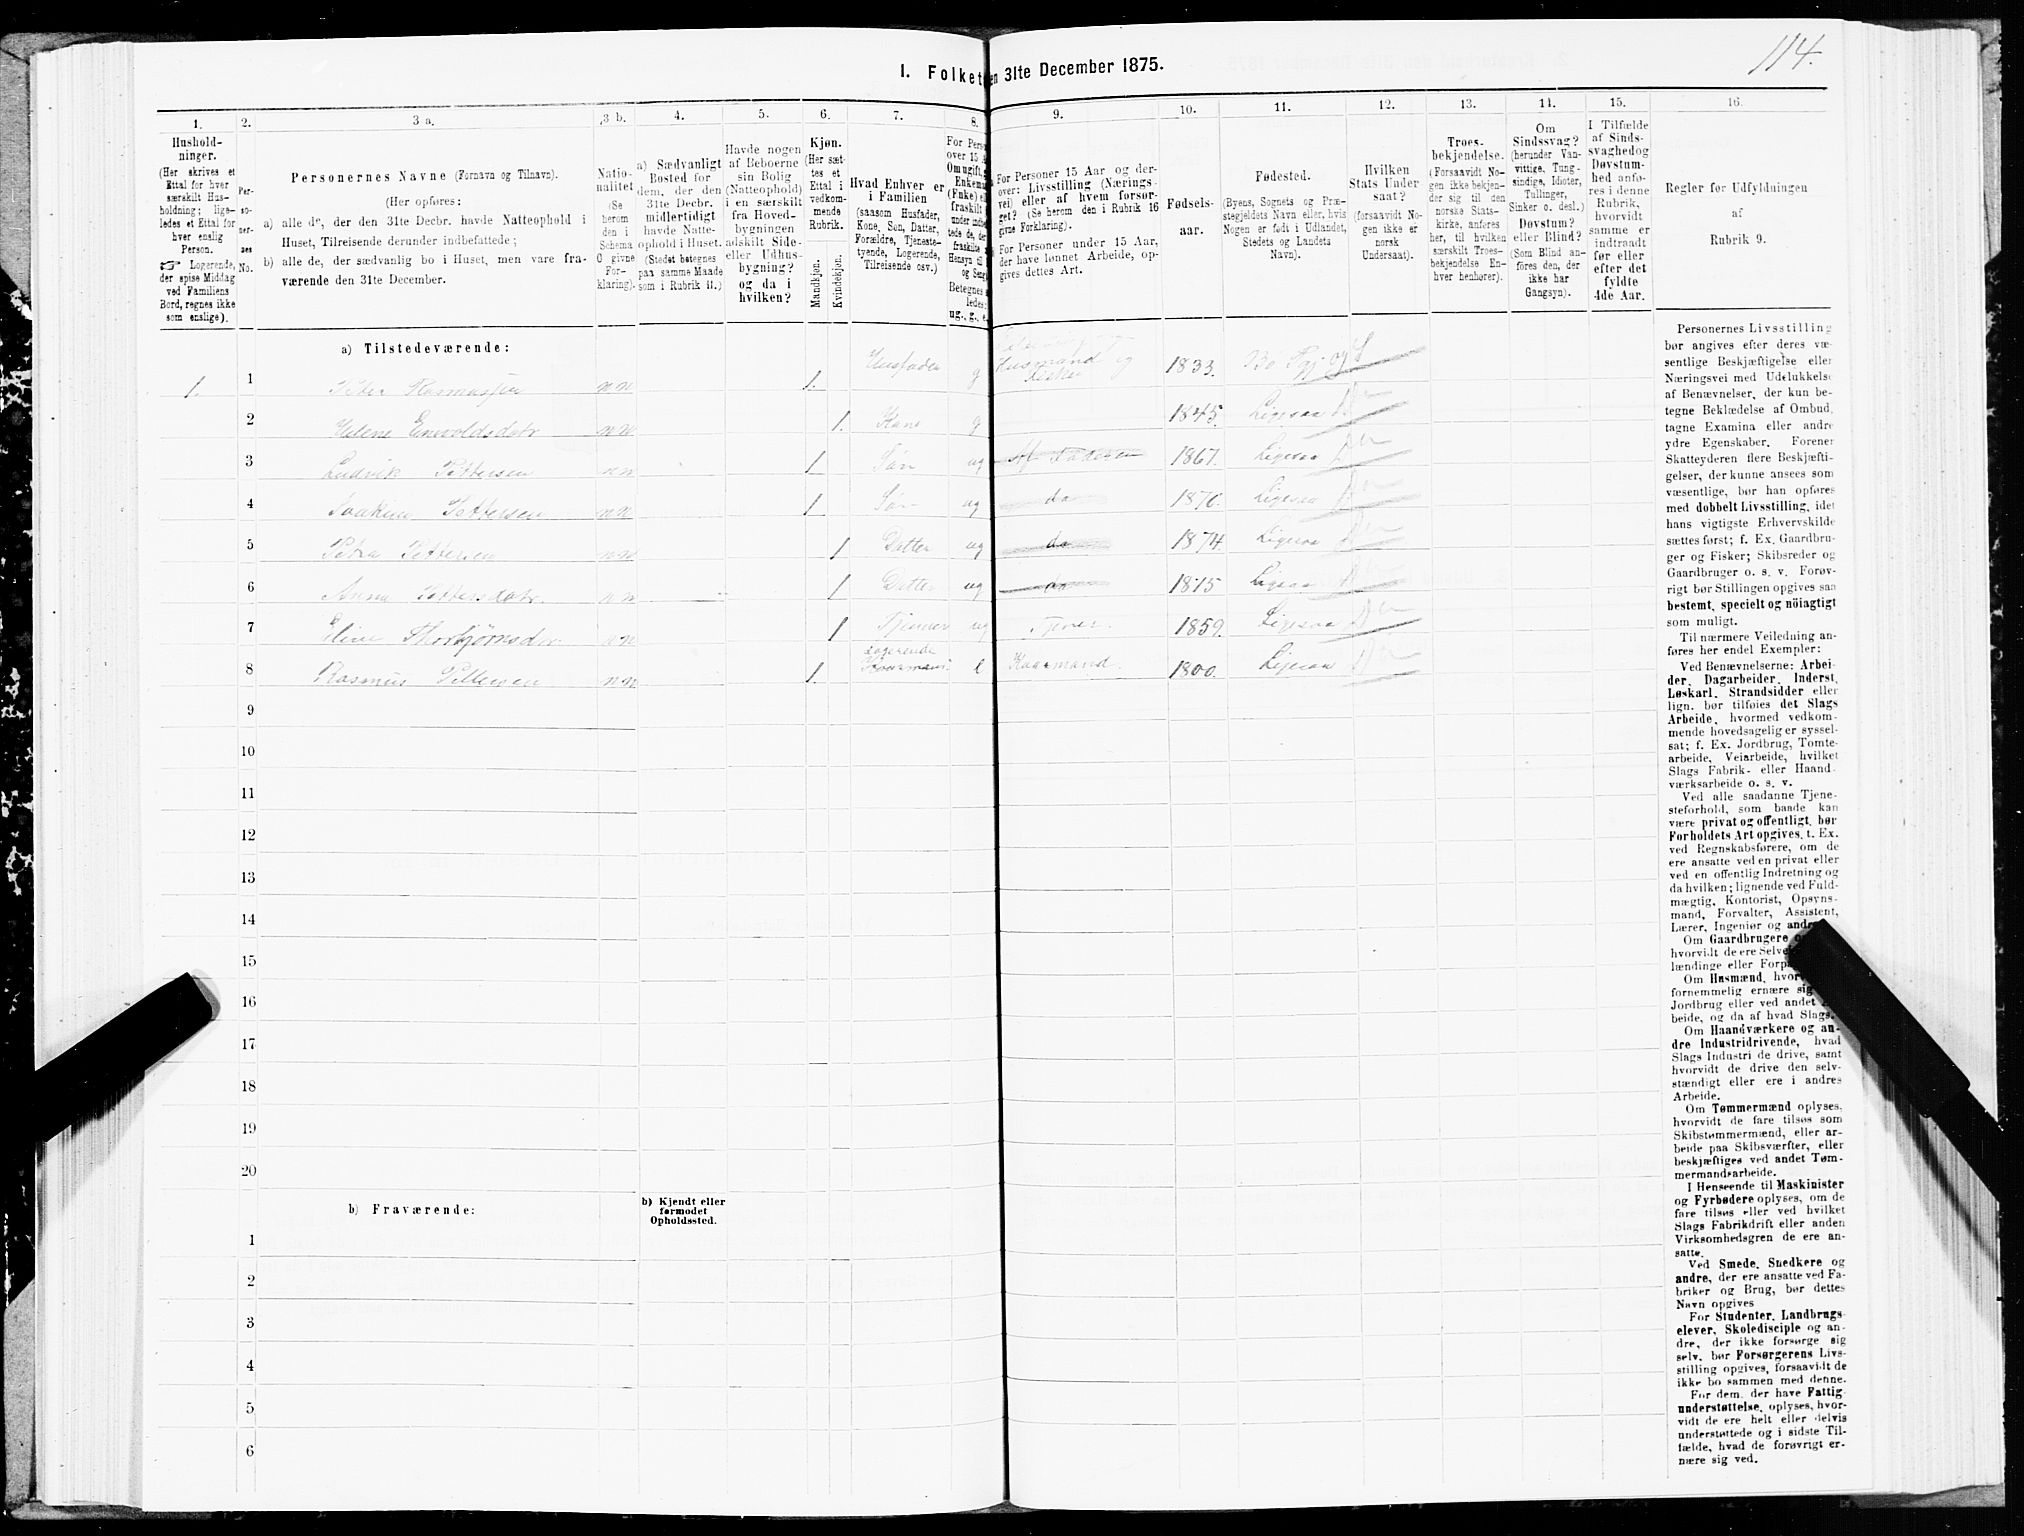 114.
1. Folket
en 31te December 1875.
1.
2.
3 a.
3 b.
4.
5.
6.
7.
8.
9.
10.
11.
12.
13.
14.
15.
16.
Hushold-
ninger.
(Her skrives et
Ettal for hver
særskilt Hus-
holdning; lige-
ledes et Ettal for
hver enslig
Person.
☞ Logerende,
der spise Middag
ved Familiens
Bord, regnes ikke
som enslige).
Per-
so-
ner-
nes
No.
Personernes Navne (Fornavn og Tilnavn).
(Her opføres:
a) alle de, der den 31te Decbr. havde Natteophold i
Huset, Tilreisende derunder indbefattede;
b) alle de, der sædvanlig bo i Huset, men vare fra-
værende den 31te December.
Natio-
nalitet
(Se
herom
den i
Schema
O givne
For-
klaring).
a) Sædvanligt
Bosted for
dem, der den
31te Decbr.
midlertidigt
havde Natte-
ophold i Huset.
(Stedet betegnes
paa samme Maade
som i Rubrik 11.)
Havde nogen
af Beboerne
sin Bolig
(Natteophold)
i en særskilt
fra Hoved-
bygningen
adskilt Side-
eller Udhus-
bygning?
og da i
hvilken?
Kjøn.
(Her sæt-
tes et
Ettal i
vedkom-
mende
Rubrik.
Mandkjøn.
Kvindekjøn.
Hvad Enhver er
i Familien
(saasom Husfader,
Kone, Søn, Datter,
Forældre, Tjeneste-
tyende, Logerende,
Tilreisende osv.)
For Pers
over 15 A
Om ugift, g
Enkem
(Fuke) e
fraskilt
under indbe
tede de, de
fraskilte
Hensyn til
og Seng
Betegnes
ledes:
ug., g., e
For Personer 15 Aar og der-
over: Livsstilling (Nærings-
vei) eller af hvem forsør-
get? (Se herom den i Rubrik 16
givne Forklaring).
For Personer under 15 Aar,
der have lønnet Arbeide, op-
gives dettes Art.
Fødsels-
aar.
Fødested.
(Byens, Sognets og Præ-
stegjeldets Navn eller, hvis
Nogen er født i Udlandet,
Stedets og Landets
Navn).
Hvilken
Stats Under-
saat?
(forsaavidt No-
gen ikke er
norsk
Undersaat).
Troes-
bekjendelse.
(Forsaavidt No-
gen ikke bekjen-
der sig til den
norske Stats-
kirke, anføres
her, til hvilken
særskilt Troes-
bekjendelse En-
hver henhører).
Om
Sindssvag?
(herunder Van-
vittige, Tung-
sindige, Idioter,
Tullinger,
Sinker o. desl.)
Døvstum?
eller Blind?
(Som Blind an-
føres den, der
ikke har
Gangsyn).
I Tilfælde
af Sinds-
svaghed og
Døvstum-
hed anfø-
res i denne
Rubrik,
hvorvidt
samme er
indtraadt
før eller
efter det
fyldte
4de Aar.
Regler før Udfyldningen
af
Rubrik 9.
a) Tilstedeværende:
1. 1 Peter Rasmussen nn 1. Husfader g Husmand og Fisker 1833.
2 Helene Envoldsdatr nn 1. Kone g 1845. Ligesaa
3 Ludvik Pettersen nn 1 Søn ug Af Faderen 1867. Ligesaa
4 Joakim Pettersen nn 1 Søn ug do 1870. Ligesaa
5 Petra Pettersen nn 1 Datter ug do 1874. Ligesaa
6 Anna Pettersdatr. nn 1 Datter ug do 1875 Ligesaa
7 Eline Thorbjørnsdr nn 1 Tjener ug Tjener 1859. Ligesaa
8 Rasmus Pettersen nn 1. Logerende Kaarmand e Kaarmand. 1800. Ligesaa
9
10
11
12
13
14
15
16
17
18
19
20
b) Fraværende:
b) Kjendt eller
formodet
Opholdssted.
1
2
3
4
5
6
Personernes Livsstilling
bør angives efter deres væ-
sentlige Beskjæftigelse eller
Næringsvei med Udelukkelse
af Benævnelser, der kun be-
tegne Beklædelse af Ombud,
tagne Examina eller andre
ydre Egenskaber. Forener
Skatteyderen flere Beskjæfti-
gelser, der kunne ansees som
væsentlige, bør han opføres
med dobbelt Livsstilling, idet
hans vigtigste Erhvervskilde
sættes først; f. Ex. Gaardbru-
ger og Fisker; Skibsreder og
Gaardbruger o. s. v. Forøv-
rigt bør Stillingen opgives saa
bestemt, specielt og nöiagtigt
som muligt.
Til nærmere Veiledning an-
føres her endel Exempler:
Ved Benævnelserne: Arbei-
der, Dagarbeider, Inderst,
Løskarl, Strandsidder eller
lign. bør tilføies det Slags
Arbeide, hvormed vedkom-
mende hovedsagelig er syssel-
sat; f. Ex. Jordbrug, Tomte-
arbeide, Veiarbeide, hvilket
Slags Fabrik- eller Haand-
værksarbeide o. s. v.
Ved alle saadanne Tjene-
steforhold, som baade kan
være privat og offentligt, bør
Forholdets Art opgives, t. Ex.
ved Regnskabsførere, om de
ere ansatte ved en privat eller
ved en offentlig Indretning og
da hvilken; lignende ved Fuld-
mægtig, Kontorist, Opsyns-
mand, Forvalter, Assistent,
Lærer, Ingeniør og andre
Om Gaardbrugere
hvorvidt de ere Selve
lændinge eller Forp
Om Husmænd, hvor
fornemmelig ernære sig
Jordbrug eller ved andet
beide, og da af hvad Slags.
Om Haandværkere og an-
dre Industridrivende, hvad
Slags Industri de drive, samt
hvorvidt de drive den selv-
stændigt eller ere i andres
Arbeide.
Om Tømmermænd oplyses,
hvorvidt de fare tilsøs som
Skibstømmermænd, eller ar-
beide paa Skibsværfter, eller
beskjæftiges ved andet Tøm-
mermandsarbeide.
I Henseende til Maskinister
og Fyrbødere oplyses, om de
fare tilsøs eller ved hvilket
Slags Fabrikdrift eller anden
Virksomhedsgren de ere an-
satte.
Ved Smede, Snedkere og
andre, der ere ansatte ved Fa-
briker og Brug, bør dettes
Navn opgives
For Studenter, Landbrugs-
elever, Skoledisciple og an-
dre, der ikke forsørge sig
selv, bør Forsørgerens Livs-
stilling opgives, forsaavidt de
ikke bo sammen med denne.
For dem, der have Fattig-
understøttelse, oplyses, hvor-
vidt de ere helt eller delvis
understøttede og i sidste Til-
fælde, hvad de forøvrigt er-
nære sig ved.